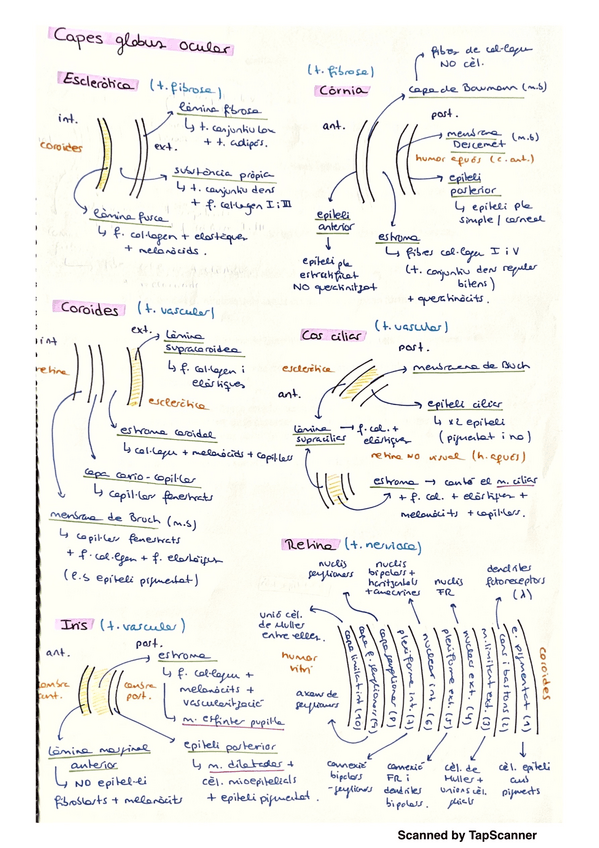 Capes globus ocular
Escleròtica (t. fibrosa)
int.
coroides
ext.
làmina fibrosa
↳ t. conjuntiu lax
+ t. adipós.
substància pròpia
↳ t. conjuntiu dens
+ f. col·lagen I i III
làmina fusca
↳ f. col·lagen + elàstiques
+ melanòcits.
(t. fibrosa)
Còrnia
fibres de col·lagen
NO cèl.
capa de Bowmann (m.b)
ant.
post.
membrana (m.b)
Descemet
humor aquós (c. ant.)
epiteli
posterior
↳ epiteli pla
simple / corneal
epiteli
anterior
epiteli pla
estratificat
NO queratinitzat
estroma
↳ fibres col·lagen I i V
(t. conjuntiu dens regular
bilens)
+ queratinòcits.
Coroides (t. vascular)
int
retina
ext.
làmina
supracoroidea
↳ f. col·lagen i
elàstiques
escleròtica
estroma coroidal
↳ col·lagen + melanòcits + capil·lars
capa corio-capilar
↳ capil·lars fenestrats
membrana de Bruch (m.s)
↳ capil·lars fenestrats
+ f. col·lagen + f. elàstiques
(E.S epiteli pigmentat)
Cos ciliar (t. vascular)
post.
escleròtica
ant.
membrana de Bruch
epiteli ciliar
↳ x2 epiteli
(pigmentat i no)
retina NO visual (h. aquós)
làmina → f. col. +
supraciliar elàstiques
estroma → conté el m. ciliar
+ f. col. + elàstiques +
melanòcits + capil·lars.
Iris (t. vascular)
ant.
post.
cambra
ant.
cambra
post.
estroma
↳ f. col·lagen +
melanòcits +
vascularització
→ m. esfínter pupil·la
làmina marginal
anterior
↳ NO epitel·li
fibroblasts + melanòcits
epiteli posterior
↳ m. dilatador +
cèl. mioepitelials
+ epiteli pigmentat.
Retina (t. nerviosa)
unió cèl.
de Muller
entre elles.
nuclis
ganglionars
nuclis
bipolars +
horitzontals
+ amacrines
nuclis
FR
dendrites
fotoreceptors
(λ)
humor
vitri
axons de
ganglionars
capa limitant int (10)
capa f. ganglionars (9)
capa ganglionar (8)
plexiforme int. (7)
nuclear int. (6)
plexiforme ext. (5)
nuclear ext. (4)
m. limitant ext. (3)
cons i bastons (2)
e. pigmentat (1)
coroides
connexió
bipolars
-ganglionars
connexió
FR i
dendrites
bipolars.
cèl. de
Muller +
unions cèl.
glials
cèl. epiteli
amb
pigments
Scanned by TapScanner